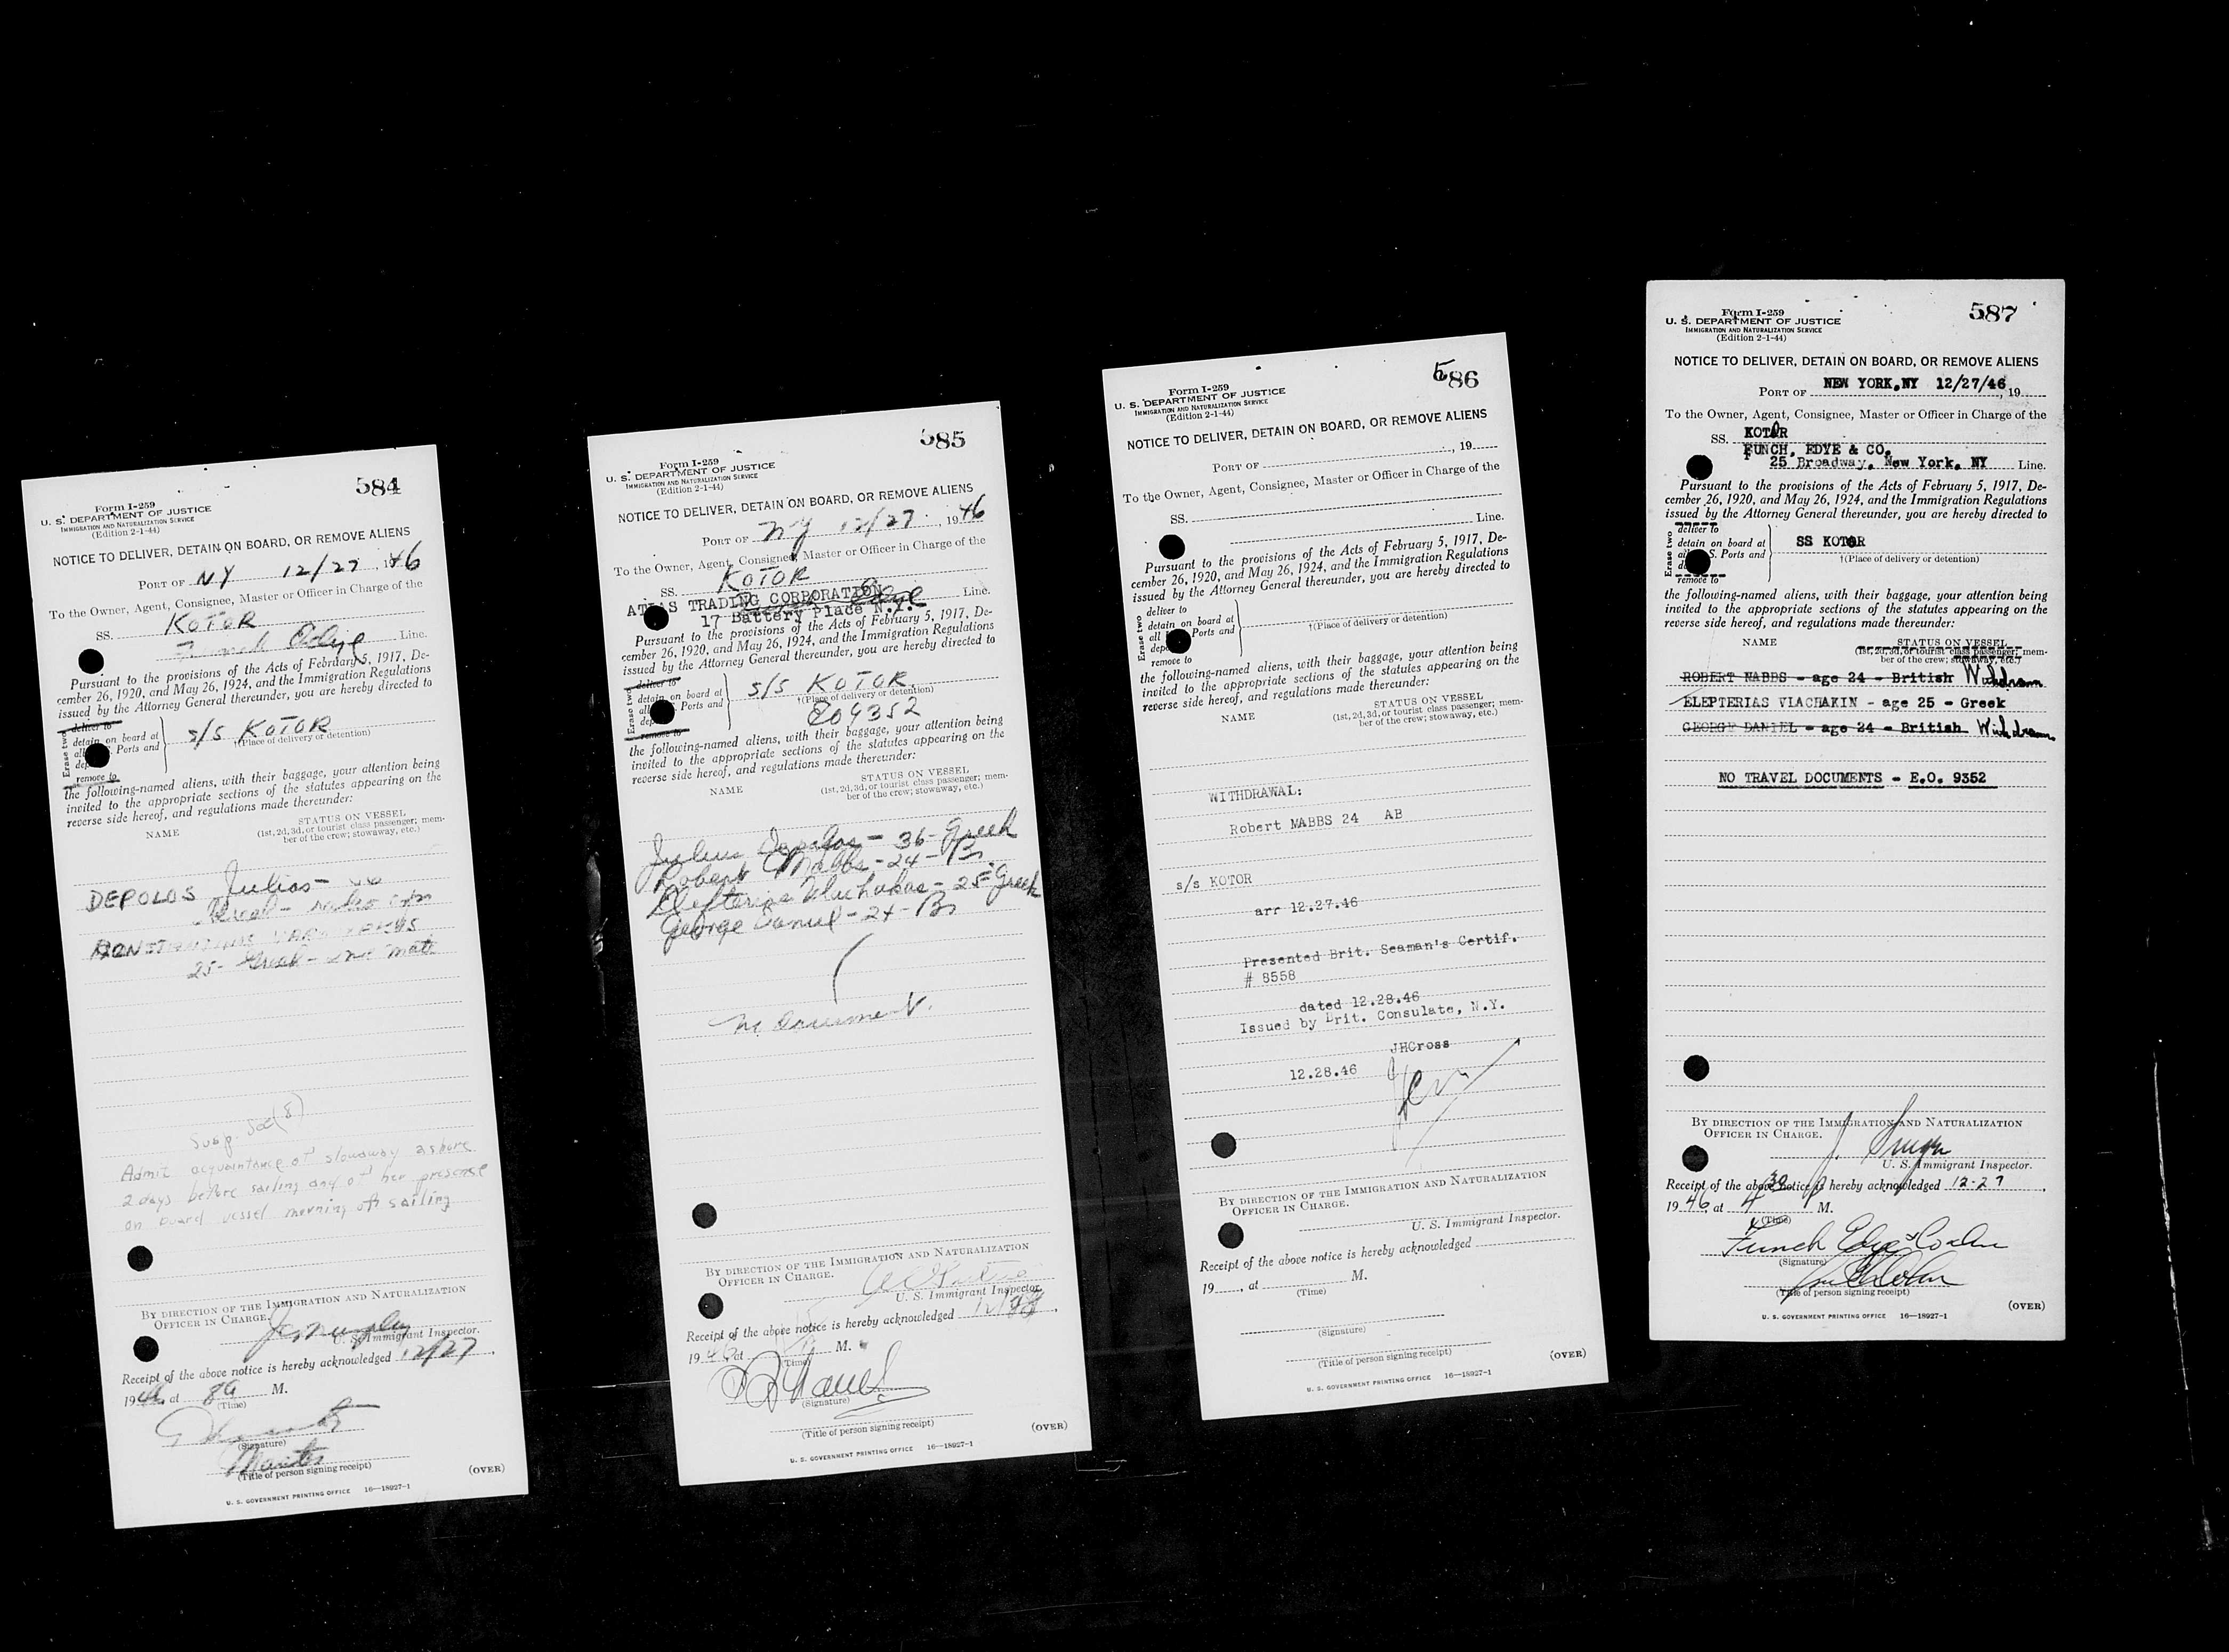 584
Form I-259
U. S. DEPARTMENT OF JUSTICE
IMMIGRATION AND NATURALIZATION SERVICE
(Edition 2-1-44)
NOTICE TO DELIVER, DETAIN ON BOARD, OR REMOVE ALIENS
PORT OF NY 12/27, 1946
To the Owner, Agent, Consignee, Master or Officer in Charge of the
SS. KOTOR
Funch Edye Line.
Pursuant to the provisions of the Acts of February 5, 1917, De-
cember 26, 1920, and May 26, 1924, and the Immigration Regulations
issued by the Attorney General thereunder, you are hereby directed to
Erase two
deliver to
detain on board at
all Ports and
remove to
s/s KOTOR
†(Place of delivery or detention)
the following-named aliens, with their baggage, your attention being
invited to the appropriate sections of the statutes appearing on the
reverse side hereof, and regulations made thereunder:
NAME
STATUS ON VESSEL
(1st, 2d, 3d, or tourist class passenger; mem-
ber of the crew; stowaway, etc.)
DEPOLOS Julios -
Greek -
25 - Greek - 2nd mate
Susp. Sec (8)
Admit acquaintance of stowaway ashore
2 days before sailing and of her presence
on board vessel morning of sailing
BY DIRECTION OF THE IMMIGRATION AND NATURALIZATION
OFFICER IN CHARGE.
U. S. Immigrant Inspector.
Receipt of the above notice is hereby acknowledged 12/27,
1946, at 8a M.
(Time)
(Signature)
Master
(Title of person signing receipt)
(OVER)
U. S. GOVERNMENT PRINTING OFFICE 16—18927-1
585
Form I-259
U. S. DEPARTMENT OF JUSTICE
IMMIGRATION AND NATURALIZATION SERVICE
(Edition 2-1-44)
NOTICE TO DELIVER, DETAIN ON BOARD, OR REMOVE ALIENS
PORT OF NY 12/27, 1946
To the Owner, Agent, Consignee, Master or Officer in Charge of the
SS. KOTOR
ATLAS TRADING CORPORATION Line.
17 Battery Place N.Y.
Pursuant to the provisions of the Acts of February 5, 1917, De-
cember 26, 1920, and May 26, 1924, and the Immigration Regulations
issued by the Attorney General thereunder, you are hereby directed to
Erase two
deliver to
detain on board at
all Ports and
remove to
s/s KOTOR
†(Place of delivery or detention)
EO 9352
the following-named aliens, with their baggage, your attention being
invited to the appropriate sections of the statutes appearing on the
reverse side hereof, and regulations made thereunder:
NAME
STATUS ON VESSEL
(1st, 2d, 3d, or tourist class passenger; mem-
ber of the crew; stowaway, etc.)
Julius - 36 - Greek
Robert Mabbs - 24 - Br
- 25 - Greek
George Daniel - 24 - Br
no document.
BY DIRECTION OF THE IMMIGRATION AND NATURALIZATION
OFFICER IN CHARGE.
U. S. Immigrant Inspector.
Receipt of the above notice is hereby acknowledged
1946, at M.
(Time)
(Signature)
(Title of person signing receipt)
(OVER)
U. S. GOVERNMENT PRINTING OFFICE 16—18927-1
586
Form I-259
U. S. DEPARTMENT OF JUSTICE
IMMIGRATION AND NATURALIZATION SERVICE
(Edition 2-1-44)
NOTICE TO DELIVER, DETAIN ON BOARD, OR REMOVE ALIENS
PORT OF , 19
To the Owner, Agent, Consignee, Master or Officer in Charge of the
SS.
Line.
Pursuant to the provisions of the Acts of February 5, 1917, De-
cember 26, 1920, and May 26, 1924, and the Immigration Regulations
issued by the Attorney General thereunder, you are hereby directed to
Erase two
deliver to
detain on board at
all Ports and
remove to
†(Place of delivery or detention)
the following-named aliens, with their baggage, your attention being
invited to the appropriate sections of the statutes appearing on the
reverse side hereof, and regulations made thereunder:
NAME
STATUS ON VESSEL
(1st, 2d, 3d, or tourist class passenger; mem-
ber of the crew; stowaway, etc.)
WITHDRAWAL:
Robert MABBS 24 AB
s/s KOTOR
arr 12.27.46
Presented Brit. Seaman's Certif.
# 8558
dated 12.28.46
Issued by Brit. Consulate, N.Y.
JHCross
12.28.46
BY DIRECTION OF THE IMMIGRATION AND NATURALIZATION
OFFICER IN CHARGE.
U. S. Immigrant Inspector.
Receipt of the above notice is hereby acknowledged
19, at M.
(Time)
(Signature)
(Title of person signing receipt)
(OVER)
U. S. GOVERNMENT PRINTING OFFICE 16—18927-1
587
Form I-259
U. S. DEPARTMENT OF JUSTICE
IMMIGRATION AND NATURALIZATION SERVICE
(Edition 2-1-44)
NOTICE TO DELIVER, DETAIN ON BOARD, OR REMOVE ALIENS
PORT OF NEW YORK, NY 12/27/46, 19
To the Owner, Agent, Consignee, Master or Officer in Charge of the
SS. KOTOR
FUNCH, EDYE & CO,
25 Broadway, New York, NY Line.
Pursuant to the provisions of the Acts of February 5, 1917, De-
cember 26, 1920, and May 26, 1924, and the Immigration Regulations
issued by the Attorney General thereunder, you are hereby directed to
Erase two
deliver to
detain on board at
S. Ports and
remove to
SS KOTOR
†(Place of delivery or detention)
the following-named aliens, with their baggage, your attention being
invited to the appropriate sections of the statutes appearing on the
reverse side hereof, and regulations made thereunder:
NAME
STATUS ON VESSEL
(1st, 2d, 3d, or tourist class passenger; mem-
ber of the crew; stowaway, etc.)
ROBERT MABBS - age 24 - British Withdrawn
ELEPTERIAS VLACHAKIN - age 25 - Greek
GEORGE DANIEL - age 24 - British Withdrawn
NO TRAVEL DOCUMENTS - E.O. 9352
BY DIRECTION OF THE IMMIGRATION AND NATURALIZATION
OFFICER IN CHARGE.
U. S. Immigrant Inspector.
Receipt of the above notice is hereby acknowledged 12-27,
1946, at 4 30 P M.
(Time)
Funch Edye & Co Inc
(Signature)
(Title of person signing receipt)
(OVER)
U. S. GOVERNMENT PRINTING OFFICE 16—18927-1